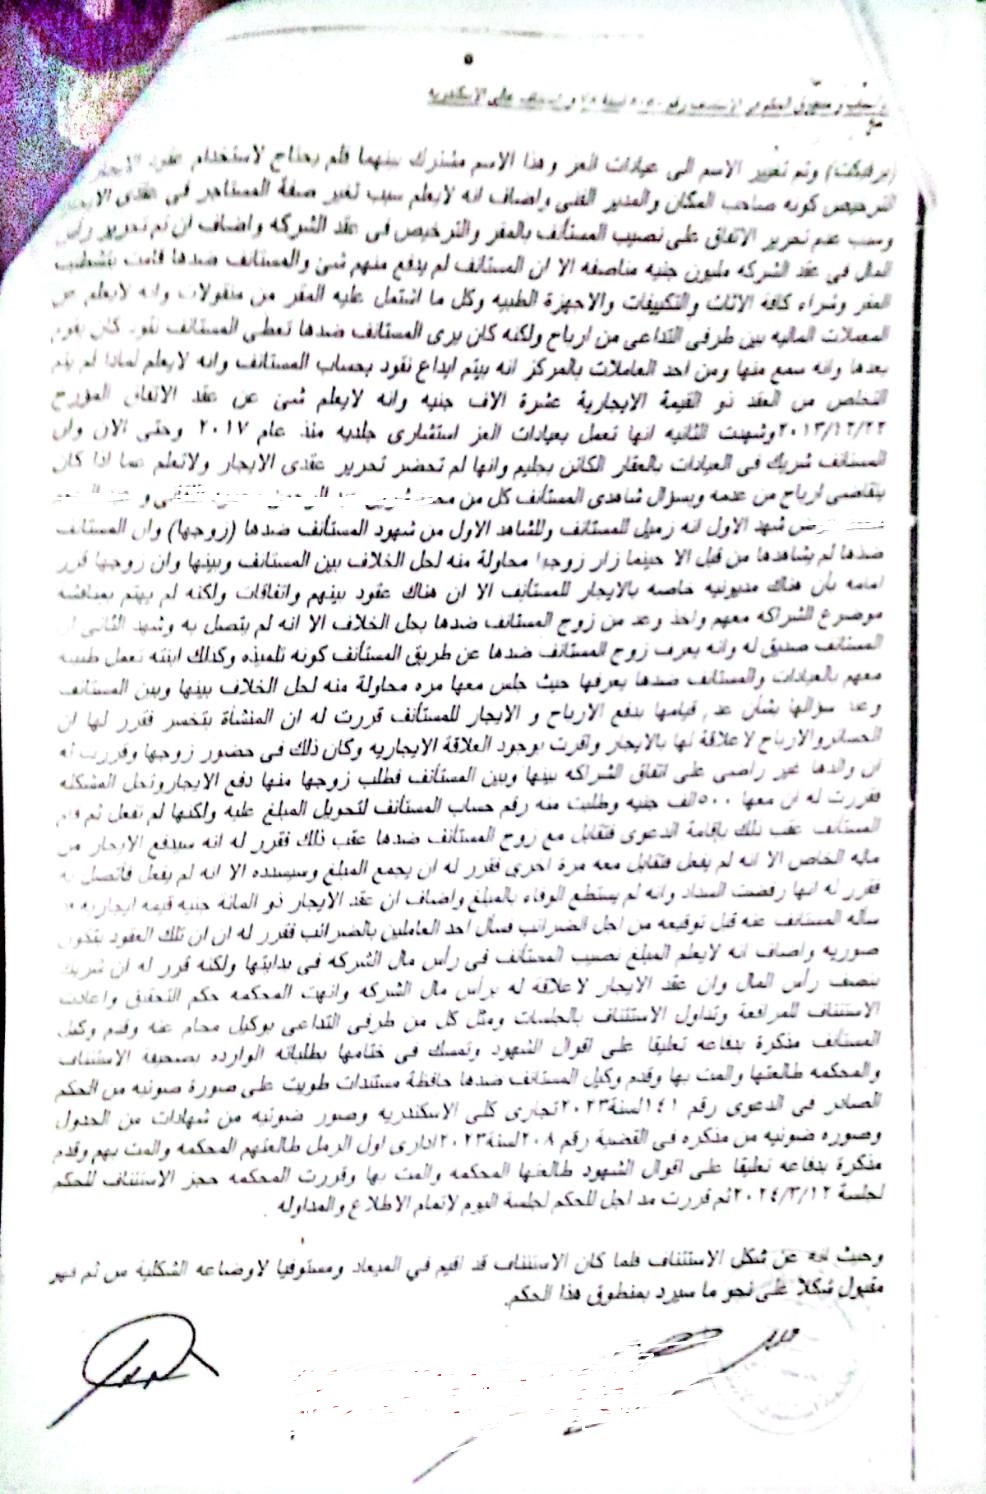 (برفيكت) وتم تغيير الاسم الى عيادات العز وهذا الاسم مشترك بينهما فلم يحتاج لاستخدام عقود الايجار
الترخيص كونه صاحب المكان والمدير الفنى واضاف انه لايعلم سبب تغير صفة المستاجر فى عقدى
وسبب عدم تحرير الاتفاق على نصيب المستأنف بالمقر والترخيص فى عقد الشركه واضاف ان تم تحرير رأس
المال فى عقد الشركه مليون جنيه مناصفه الا ان المستانف لم يدفع منهم شئ والمستانف ضدها قامت بتشطيب
المقر وشراء كافة الاثاث والتكييفات والاجهزة الطبيه وكل ما اشتمل عليه المقر من منقولات وانه لايعلم عن
المعملات الماليه بين طرفى التداعى من ارباح ولكنه كان يرى المستانف ضدها تعطى المستانف نقود كان يقوم
بعدها وانه سمع منها ومن احد العاملات بالمركز انه بيتم ايداع نقود بحساب المستانف وانه لايعلم لماذا لم يتم
التخلص من العقد ذو القيمة الايجارية عشرة الاف جنيه وانه لايعلم شئ عن عقد الاتفاق المؤرخ
٢٠١٣/١٢/٢٢ وشهدت الثانيه انها تعمل بعيادات العز استشارى جلديه منذ عام ٢٠١٧ وحتى الان وان
المستانف شريك فى العيادات بالعقار الكائن بجليم وانها لم تحضر تحرير عقدى الايجار ولاتعلم عما اذا كان
يتقاضى ارباح من عدمه وبسؤال شاهدى المستأنف كل من
شهد الاول انه زميل للمستانف وللشاهد الاول من شهود المستأنف ضدها (زوجها) وان المستانف
ضدها لم يشاهدها من قبل الا حينما زار زوجها محاولة منه لحل الخلاف بين المستانف وبينها وان زوجها قرر
امامه بأن هناك مديونيه خاصه بالايجار للمستأنف الا ان هناك عقود بينهم واتفاقات ولكنه لم يهتم بمناقشة
موضوع الشراكه معهم واخذ وعد من زوج المستانف ضدها بحل الخلاف الا انه لم يتصل به وشهد الثانى ان
المستانف صديق له وانه يعرف زوج المستانف ضدها عن طريق المستأنف كونه تلميذه وكذلك ابنته تعمل طبيبه
معهم بالعيادات والمستانف ضدها يعرفها حيث جلس معها مره محاولة منه لحل الخلاف بينها وبين المستانف
وعند سؤالها بشأن عدم قيامها بدفع الارباح و الايجار للمستأنف قررت له ان المنشأة بتخسر فقرر لها ان
الخسائر والارباح لاعلاقة لها بالايجار واقرت بوجود العلاقة الايجاريه وكان ذلك فى حضور زوجها وقررت له
ان والدها غير راضى على اتفاق الشراكه بينها وبين المستأنف فطلب زوجها منها دفع الايجار وتحل المشكله
فقررت له ان معها ٥٠٠الف جنيه وطلبت منه رقم حساب المستأنف لتحويل المبلغ عليه ولكنها لم تفعل ثم قام
المستأنف عقب ذلك بإقامة الدعوى فتقابل مع زوج المستأنف ضدها عقب ذلك فقرر له انه سيدفع الايجار من
ماله الخاص الا انه لم يفعل فتقابل معه مرة اخرى فقرر له ان يجمع المبلغ وسيسدده الا انه لم يفعل فأتصل به
فقرر له انها رفضت السداد وانه لم يستطع الوفاء بالمبلغ واضاف ان عقد الايجار ذو المائة جنيه قيمه ايجاريه
ساله المستانف عنه قبل توقيعه من اجل الضرائب فسأل احد العاملين بالضرائب فقرر له ان ان تلك العقود بتكون
صوريه واضاف انه لايعلم المبلغ نصيب المستأنف فى رأس مال الشركه فى بدايتها ولكنه قرر له ان شريك
بنصف رأس المال وان عقد الايجار لاعلاقة له برأس مال الشركه وانهت المحكمه حكم التحقيق واعادت
الاستئناف للمرافعة وتداول الاستئناف بالجلسات ومثل كل من طرفى التداعى بوكيل محام عنه وقدم وكيل
المستأنف مذكرة بدفاعه تعليقا على اقوال الشهود وتمسك فى ختامها بطلباته الوارده بصحيفة الاستئناف
والمحكمه طالعتها والمت بها وقدم وكيل المستانف ضدها حافظة مستندات طويت على صورة ضوئيه من الحكم
الصادر فى الدعوى رقم ١٤١ لسنة ٢٠٢٣ تجارى كلى الاسكندريه وصور ضوئيه من شهادات من الجدول
وصوره ضوئيه من مذكره فى القضية رقم ٢٠٨ لسنة ٢٠٢٣ ادارى اول الرمل طالعتهم المحكمه والمت بهم وقدم
مذكرة بدفاعه تعليقا على اقوال الشهود طالعتها المحكمه والمت بها وقررت المحكمه حجز الاستئناف للحكم
لجلسة ٢٠٢٤/٣/١٢ ثم قررت مد اجل للحكم لجلسة اليوم لاتمام الاطلاع والمداوله .
وحيث انه عن شكل الاستئناف فلما كان الاستئناف قد اقيم في الميعاد ومستوفيا لاوضاعه الشكلية من ثم فهو
مقبول شكلاً على نحو ما سيرد بمنطوق هذا الحكم.